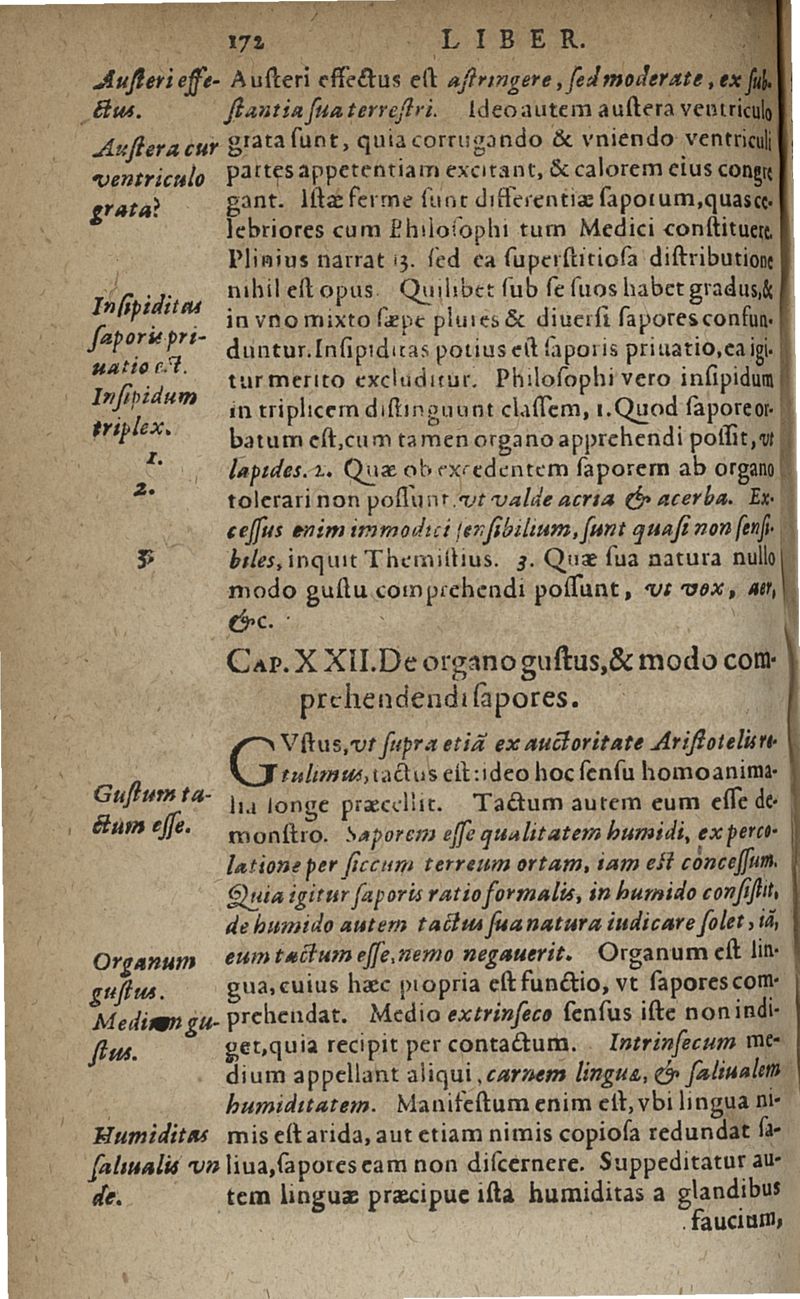 172 LIBER.
Auſteri effe-
ctus.
Auſtera cur
ventriculo
grata?
Inſipiditas
ſaporis pri-
uatio eſt.
Inſipidum
triplex.
1.
2.
3
Auſteri effectus eſt aſtringere, ſed moderate, ex ſub-
ſtantia ſua terreſtri. Ideo autem auſtera ventriculo
grata ſunt, quia corrugando & vniendo ventriculi
partes appetentiam excitant, & calorem eius congre
gant. Iſtæ ferme ſunt differentiæ ſaporum, quas ce-
lebriores cum Philoſophi tum Medici conſtituere.
Plinius narrat 13. ſed ea ſuperſtitioſa diſtributione
nihil eſt opus. Quilibet ſub ſe ſuos habet gradus, &
in vno mixto ſæpe plures & diuerſi ſapores confun-
duntur. Inſipiditas potius eſt ſaporis priuatio, ea igi-
tur merito excluditur. Philoſophi vero inſipidum
in triplicem diſtinguunt claſſem, 1. Quod ſapore or-
batum eſt, cum tamen organo apprehendi poſſit, vt
lapides. 2. Quæ ob excedentem ſaporem ab organo
tolerari non poſſunt. vt valde acria & acerba. Ex-
ceſſus enim immodici ſenſibilium, ſunt quaſi non ſenſi-
biles, inquit Themiſtius. 3. Quæ ſua natura nullo
modo guſtu comprehendi poſſunt, vt vox, aer,
&c.
CAP. XXII. De organo guſtus, & modo com-
prehendendi ſapores.
Guſtum ta-
ctum eſſe.
Organum
guſtus.
Medium gu-
ſtus.
Humiditas
ſaliualis vn
de.
GVſtus, vt ſupra etiã ex auctoritate Ariſtotelis re-
tulimus, tactus eſt: ideo hoc ſenſu homo anima-
lia longe præcellit. Tactum autem eum eſſe de-
monſtro. Saporem eſſe qualitatem humidi, ex perco-
latione per ſiccum terreum ortam, iam eſt conceſſum.
Quia igitur ſaporis ratio formalis, in humido conſiſtit,
de humido autem tactus ſua natura iudicare ſolet, iã,
eum tactum eſſe, nemo negauerit. Organum eſt lin-
gua, cuius hæc propria eſt functio, vt ſapores com-
prehendat. Medio extrinſeco ſenſus iſte non indi-
get, quia recipit per contactum. Intrinſecum me-
dium appellant aliqui, carnem linguæ, & ſaliualem
humiditatem. Manifeſtum enim eſt, vbi lingua ni-
mis eſt arida, aut etiam nimis copioſa redundat ſa-
liua, ſapores eam non diſcernere. Suppeditatur au-
tem linguæ præcipue iſta humiditas a glandibus
faucium,